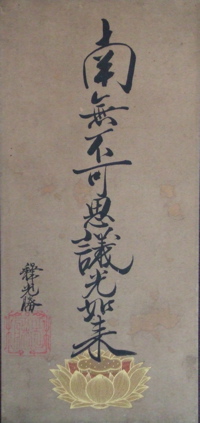 南無不可思議光如来
釋光勝